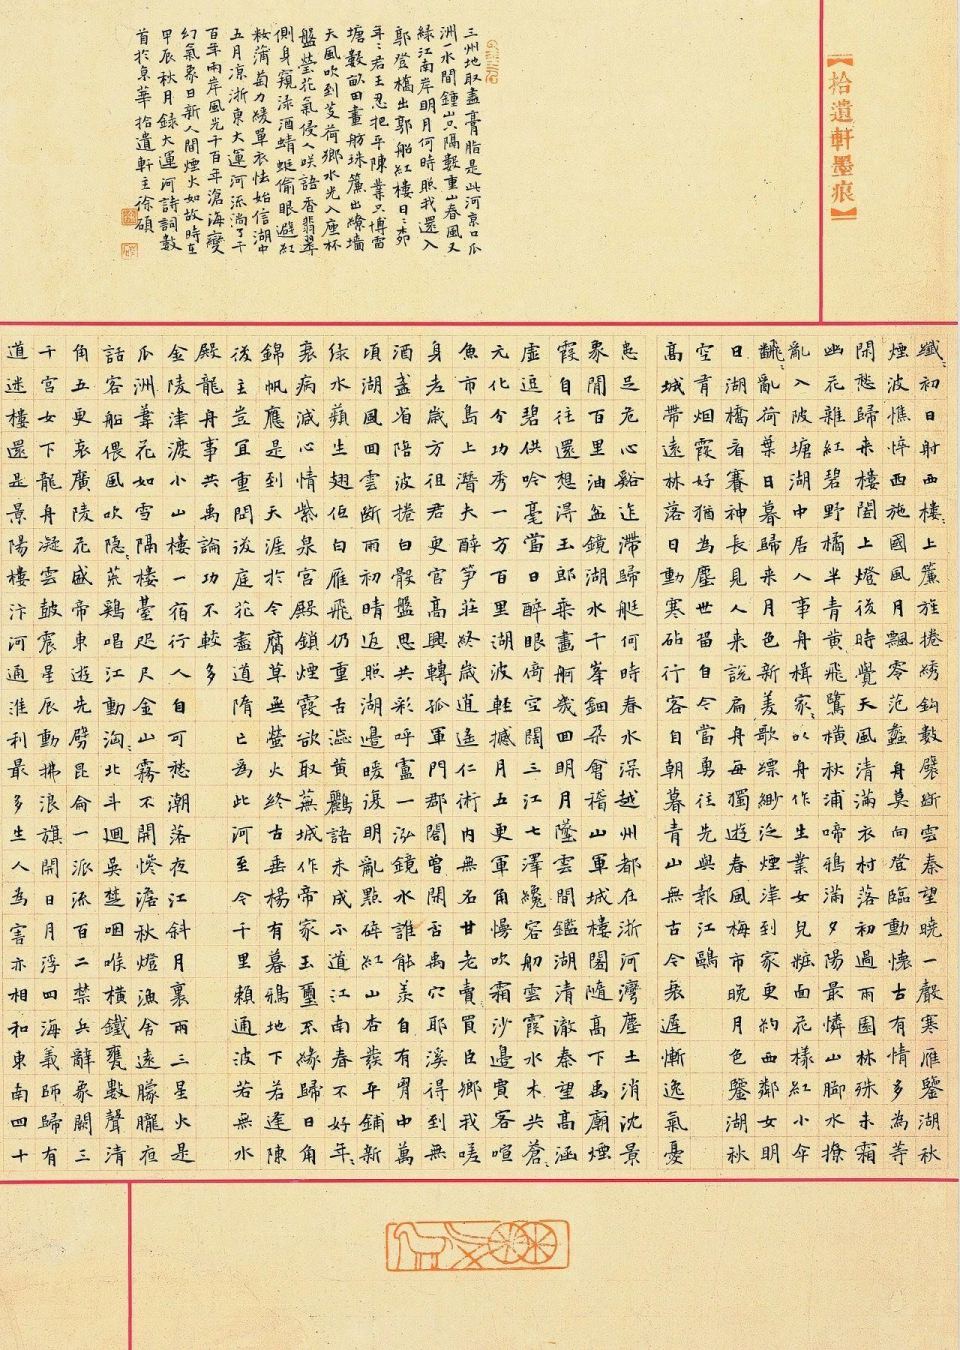 【拾遺軒墨痕】
纖〻初日射西樓〻上簾旌捲綉鈎數襞斷雲秦望曉一聲寒雁鑒湖秋
煙波憔悴西施國風月飄零范蠡舟莫向登臨動懷古有情多為等
閑愁歸來樓閣上燈後時覺天風清滿衣村落初過雨園林殊未霜
幽花雜紅碧野橘半青黃飛鷺橫秋浦啼鴉滿夕陽最憐山脚水撩
亂入陂塘湖中居人事舟楫家〻以舟作生業女兒粧面花樣紅小伞
翻〻亂荷葉日暮歸来月色新羡歌縹緲泛煙津到家更約西鄰女明
日湖橋看賽神長見人来說扁舟每獨遊春風梅市晚月色鑒湖秋
空有烟霞好猶為塵世留自今當勇往先與報江鷗
高城帶遠林落日動寒砧行客自朝暮青山無古今衰遲慚逸氣憂
患足危心谿迮滯歸艇何時春水深越州都在浙河灣塵土消沈景
象閒百里油盆鏡湖水千峯鈿朵會稽山軍城樓閣隨高下禹廟煙
霞自往還想得玉郎乘畫舸幾回明月墜雲間鑑湖清澈秦望高涵
虛逗碧供吟毫當日醉眼倚空闊三江七澤纔容舠雲霞水木共蒼〻
元化分功秀一方百里湖波軽撼月五更軍角慢吹霜沙邊賓客喧
魚市島上潛夫醉笋莊終歲逍遥仁術内無名甘老賣買臣鄉我嗟
身老歲方徂君更官高興轉孤軍門郡閤曾閑否禹穴耶溪得到無
酒盞省陪波捲白骰盤思共彩呼盧一泓鏡水誰能羡自有胷中萬
頃湖風回雲斷雨初晴返照湖邊暖復明亂點碎紅山杏發平鋪新
綠水蘋生翅低白雁飛仍重舌澁黄鸝語未成不道江南春不好年〻
衰病減心情紫泉宮殿鎖煙霞欲取蕪城作帝家玉璽不緣歸日角
錦帆應是到天涯於今腐草無螢火終古垂楊有暮鴉地下若逢陳
後主豈宜重問後庭花盡道隋亡為此河至今千里賴通波若無水
殿龍舟事共禹論功不較多
金陵津渡小山樓一宿行人自可愁潮落夜江斜月裏兩三星火是
瓜洲葦花如雪隔樓臺咫尺金山霧不開慘澹秋燈漁舍遠朦朧夜
話客船偎風吹隱〻荒鷄唱江動洶〻北斗迴吳楚咽喉橫鐵甕數聲清
角五更哀廣陵花盛帝東遊先劈昆侖一派流百二禁兵辭象闕三
千宮女下龍舟凝雲鼓震星辰動拂浪旗開日月浮四海義師歸有
道迷樓還是景陽樓汴河通淮利最多生人為害亦相和東南四十
三州地取盡膏脂是此河京口瓜
洲一水間鍾山只隔數重山春風又
綠江南岸明月何時照我還入
郭登橋出郭船紅樓日〻柳
年〻君王忍把平陳業只博雷
塘數畝田畫舫珠簾出繚墻
天風吹到芰荷鄉水光入座杯
盤瑩花氣侵人咲語香翡翠
側身窺淥酒蜻蜓偷眼避紅
籹蒲萄力緩單衣怯始信湖中
五月凉浙東大運河流淌了千
百年兩岸風光千百年滄海變
幻氣象日新人間煙火如故時在
甲辰秋月録大運河詩詞數
首於京華拾遺軒主徐碩